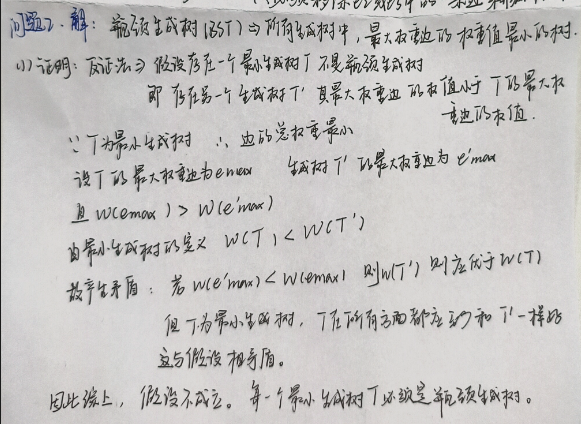 问题2. 解: 瓶颈生成树(BST) ⇒ 所有生成树中, 最大权重边的权重值最小的树.
(1) 证明: 反证法⇒ 假设存在一个最小生成树T不是瓶颈生成树
即 存在另一个生成树T' 其最大权重边的权值小于T的最大权
重边的权值.
∵ T为最小生成树 ∴ 边的总权重最小
设T的最大权重边为emax 生成树T'的最大权重边为e'max
且 W(emax) > W(e'max)
由最小生成树的定义 W(T) < W(T')
故产生矛盾: 若W(e'max) < W(emax) 则W(T') 则应优于W(T)
但T为最小生成树, T在所有方面都应 和T'一样好
这与假设相矛盾。
因此综上, 假设不成立。每一个最小生成树T必须是瓶颈生成树。